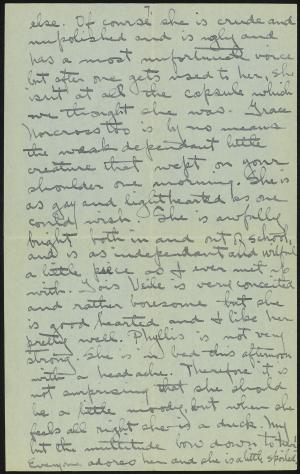 7.
else. Of course she is crude and
unpolished and is ugly and
has a most unfortunate voice
but after one gets used to her, she
isn't at all the capsule which
we thought she was. Grace
Norcross too is by no means
the weak dependent little
creature that wept on your
shoulder one morning. She is
as gay and lighthearted as one
could wish. She is awfully
bright both in and out of school,
and is as independent and wilful
a little piece as I ever met up
with. Lois Veite is very conceited
and rather boresome but she
is good hearted and I like her
pretty well. Phyllis is not very
strong. She is in bed this afternoon
with a headache. Therefore it is
not surprising that she should
be a little moody, but when she
feels all right she is a duck. My
but the multitude bow down to her
Everyone adores her and she is a little spoiled